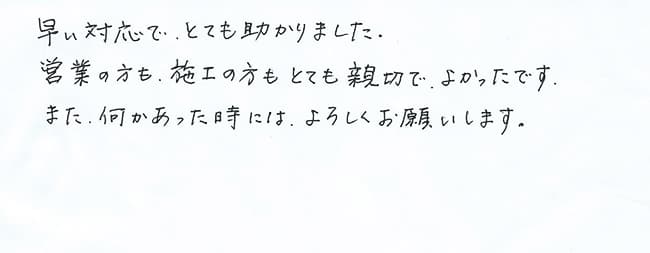 早い対応で、とても助かりました。
営業の方も、施工の方もとても親切で、よかったです。
また、何かあった時には、よろしくお願いします。